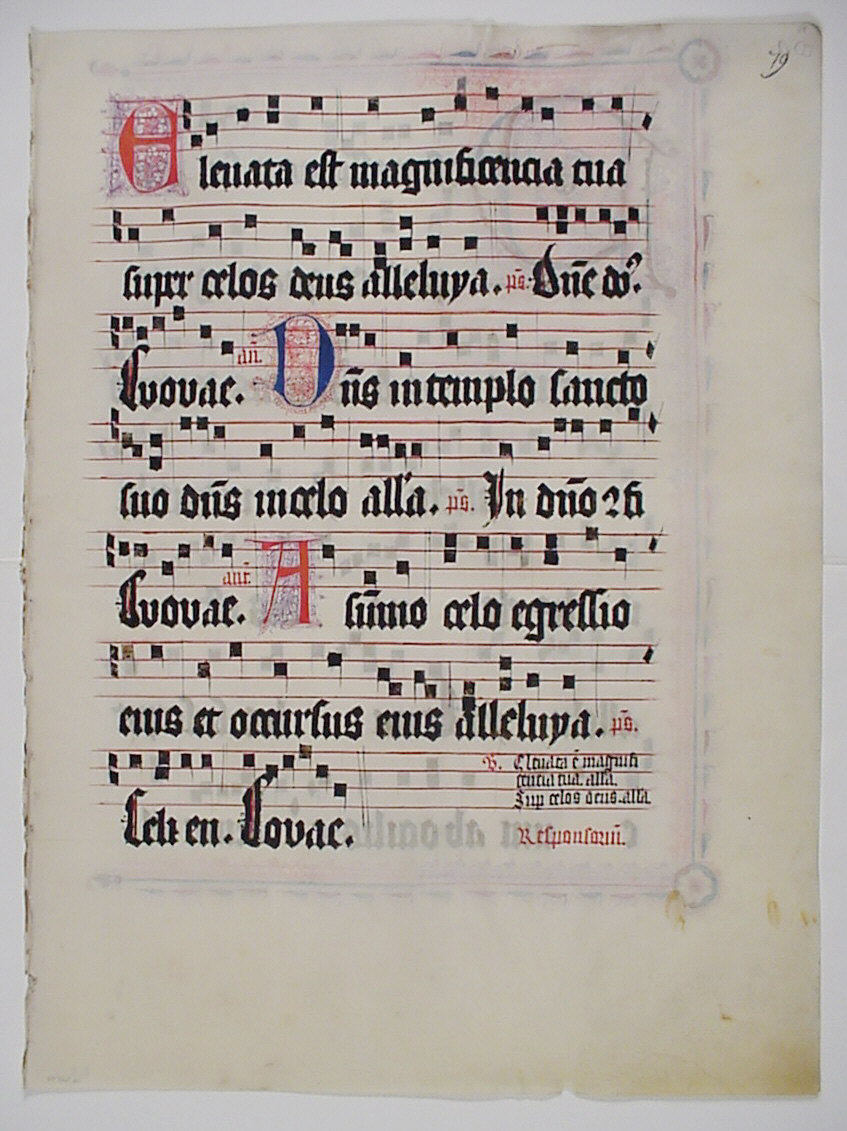 79
Eleuata est magnificencia tua
super celos deus alleluya. ps. Dn̄e do᷒.
Euouae. an. Dn̄s in templo sancto
suo dn̄s in celo all'a. ps. In dn̄o ꝯfi
Euouae. ant. A sūmo celo egressio
eius et occursus eius alleluya. ps.
Celi en. Eouae.
V. Eleuata ē magnifi
cencia tua. alla.
Sup celos deus. alla.
Responsoriū.